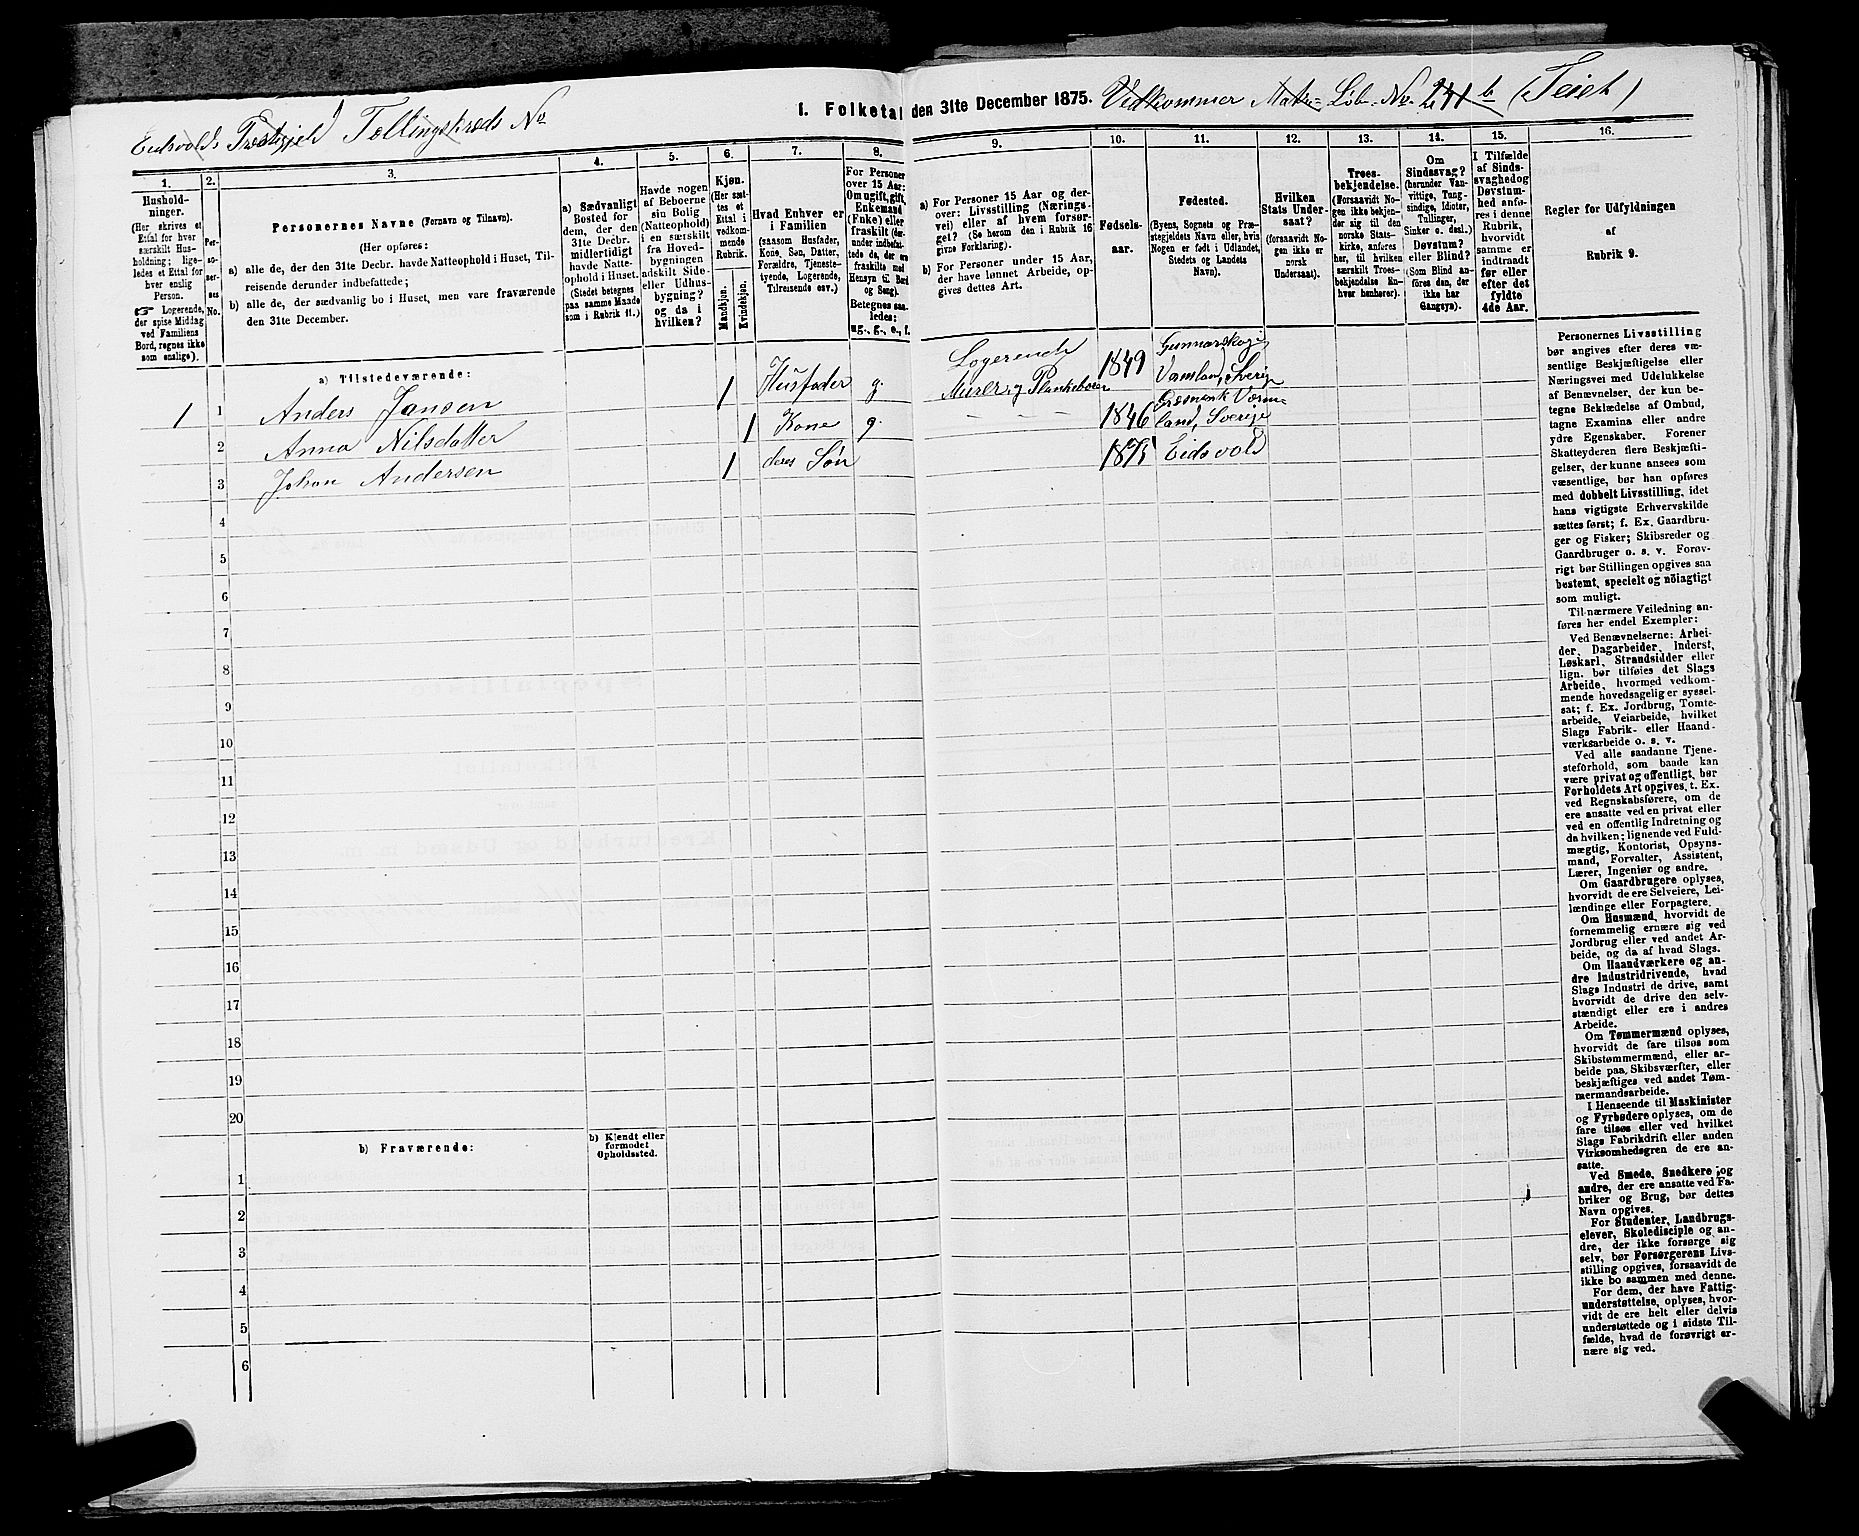 I. Folketal den 31te December 1875. Vedkommer Matr.- Löb-No. 241 b (Teiet)
Eidsvolds Præstegjeld Tællingskreds No
1.
Husholdninger.
(Her skrives et
Ettal for hver
særskilt Husholdning; ligeledes et Ettal for
hver enslig
Person.
☞ Logerende,
der spise Middag
ved Familiens
Bord, regnes ikke
som enslige).
2.
Personernes
No.
3.
Personernes Navne (Fornavn og Tilnavn).
(Her opføres:
a) alle de, der den 31te Decbr. havde Natteophold i Huset, Tilreisende derunder indbefattede;
b) alle de, der sædvanlig bo i Huset, men vare fraværende
den 31te December.
4.
a) Sædvanligt
Bosted for
dem, der den
31te Decbr.
midlertidigt
havde Natteophold i Huset.
(Stedet betegnes
paa samme Maade
som i Rubrik 11.)
5.
Havde nogen
af Beboerne
sin Bolig
(Natteophold)
i en særskilt
fra Hovedbygningen
adskilt Side-
eller Udhusbygning?
og da i
hvilken?
6.
Kjøn.
(Her sættes et
Ettal i
vedkommende
Rubrik.
Mandkjøn.
Kvindekjøn.
7.
Hvad Enhver er
i Familien
(saasom Husfader,
Kone, Søn, Datter,
Forældre, Tjenestetyende, Logerende,
Tilreisende osv.)
8.
For Personer
over 15 Aar:
Om ugift, gift,
Enkemand
(Enke) eller
fraskilt
Betegnes saaledes:
ug., g., e., f.
9.
a) For Personer 15 Aar og derover: Livsstilling (Næringsvei) eller af hvem forsørget? (Se herom den i Rubrik 16
givne Forklaring.)
b) For Personer under 15 Aar,
der have lønnet Arbeide, opgives dettes Art.
10.
Fødselsaar.
11.
Fødested.
(Byens, Sognets og Præstegjeldets Navn eller, hvis
Nogen er født i Udlandet,
Stedets og Landets
Navn).
12.
Hvilken
Stats Undersaat?
(forsaavidt Nogen ikke er
norsk
Undersaat).
13.
Troesbekjendelse.
(Forsaavidt Nogen ikke bekjender sig til den
norske Statskirke, anføres
her, til hvilken
særskilt Troesbekjendelse Enhver henhører).
14.
Om
Sindssvag?
(herunder Vanvittige, Tungsindige, Idioter,
Tullinger,
Sinker o. desl.)
Døvstum?
eller Blind?
(Som Blind anføres den, der
ikke har
Gangsyn).
15.
I Tilfælde
af Sindssvaghed og
Døvstumhed anføres i denne
Rubrik,
hvorvidt
samme er
indtraadt
før eller
efter det
fyldte
4de Aar.
16.
Regler for Udfyldningen
af
Rubrik 9.
a) Tilstedeværende:
1 1 Anders Jansen 1 Husfader g. Logerende Murer og Plankebærer 1849 Gunnarskog, Værmland, Sverige
2 Anna Nilsdatter 1 Kone g. — — — 1846 Græsmark Værmland, Sverige
3 Johan Andersen 1 deres Søn 1875 Eidsvold
4
5
6
7
8
9
10
11
12
13
14
15
16
17
18
19
20
b) Fraværende:
b) Kjendt eller
formodet
Opholdssted.
1
2
3
4
5
6
Personernes Livsstilling
bør angives efter deres væsentlige Beskjæftigelse eller
Næringsvei med Udelukkelse
af Benævnelser, der kun betegne Beklædelse af Ombud,
tagne Examina eller andre
ydre Egenskaber. Forener
Skatteyderen flere Beskjæftigelser, der kunne ansees som
væsentlige, bør han opføres
med dobbelt Livsstilling, idet
hans vigtigste Erhvervskilde
sættes først; f. Ex. Gaardbruger og Fisker; Skibsreder og
Gaardbruger o. s. v. Forøvrigt bør Stillingen opgives saa
bestemt, specielt og nöiagtigt
som muligt.
Til nærmere Veiledning anføres her endel Exempler:
Ved Benævnelserne: Arbeider, Dagarbeider, Inderst,
Løskarl, Strandsidder eller
lign. bør tilføies det Slags
Arbeide, hvormed vedkommende hovedsagelig er sysselsat; f. Ex. Jordbrug, Tomtearbeide, Veiarbeide, hvilket
Slags Fabrik- eller Haandværksarbeide o. s. v.
Ved alle saadanne Tjenesteforhold, som baade kan
være privat og offentligt, bør
Forholdets Art opgives, t. Ex.
ved Regnskabsførere, om de
ere ansatte ved en privat eller
ved en offentlig Indretning og
da hvilken; lignende ved Fuldmægtig, Kontorist, Opsynsmand, Forvalter, Assistent,
Lærer, Ingeniør og andre.
Om Gaardbrugere oplyses,
hvorvidt de ere Selveiere, Leilændinge eller Forpagtere.
Om Husmænd, hvorvidt de
fornemmelig ernære sig ved
Jordbrug eller ved andet Arbeide, og da af hvad Slags.
Om Haandværkere og andre Industridrivende, hvad
Slags Industri de drive, samt
hvorvidt de drive den selvstændigt eller ere i andres
Arbeide.
Om Tømmermænd oplyses,
hvorvidt de fare tilsøs som
Skibstømmermænd, eller arbeide paa Skibsværfter, eller
beskjæftiges ved andet Tømmermandsarbeide.
I Henseende til Maskinister
og Fyrbødere oplyses, om de
fare tilsøs eller ved hvilket
Slags Fabrikdrift eller anden
Virksomhedsgren de ere ansatte.
Ved Smede, Snedkere og
andre, der ere ansatte ved Fabriker og Brug, bør dettes
Navn opgives.
For Studenter, Landbrugselever, Skoledisciple og andre, der ikke forsørge sig
selv, bør Forsørgerens Livsstilling opgives, forsaavidt de
ikke bo sammen med denne.
For dem, der have Fattigunderstøttelse, oplyses, hvorvidt de ere helt eller delvis
understøttede og i sidste Tilfælde, hvad de forøvrigt ernære sig ved.